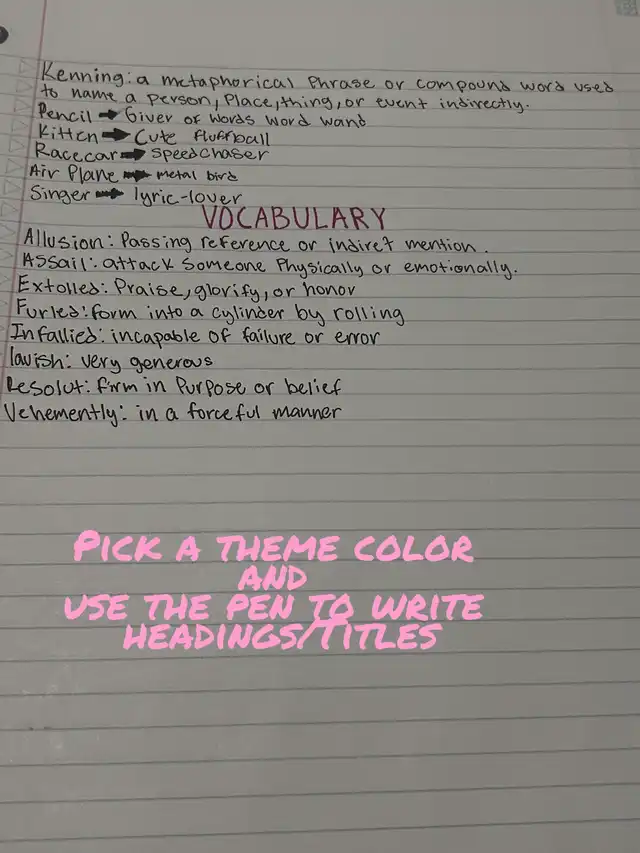 Kenning: a metaphorical phrase or compound word used
to name a person, place, thing, or event indirectly.
Pencil → Giver of words word wand
Kitten → Cute fluffball
Racecar → speedchaser
Air Plane → metal bird
Singer → lyric-lover
VOCABULARY
Allusion: Passing reference or indiret mention.
Assail: attack someone physically or emotionally.
Extolled: Praise, glorify, or honor
Furled: form into a cylinder by rolling
Infallied: incapable of failure or error
lavish: very generous
Resolut: firm in purpose or belief
Vehemently: in a forceful manner
PICK A THEME COLOR
AND
USE THE PEN TO WRITE
HEADINGS/TITLES